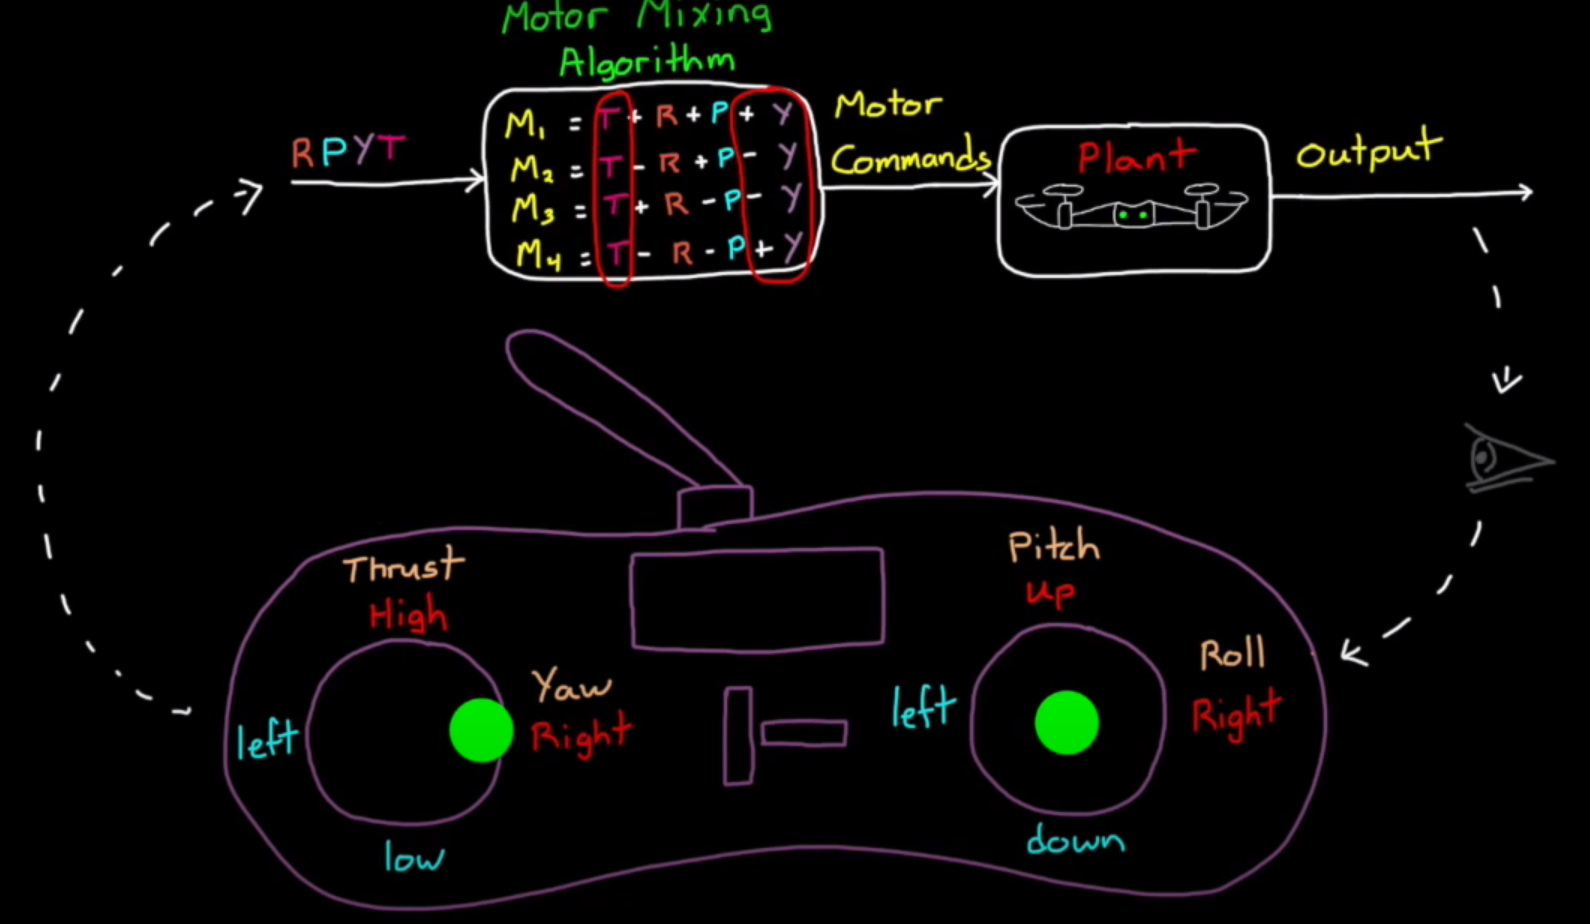 Motor Mixing
Algorithm
M1 = T + R + P + Y
M2 = T - R + P - Y
M3 = T + R - P - Y
M4 = T - R - P + Y
RPYT
Motor
Commands
Plant
Output
Thrust
High
left
Yaw
Right
low
Pitch
up
left
Roll
Right
down